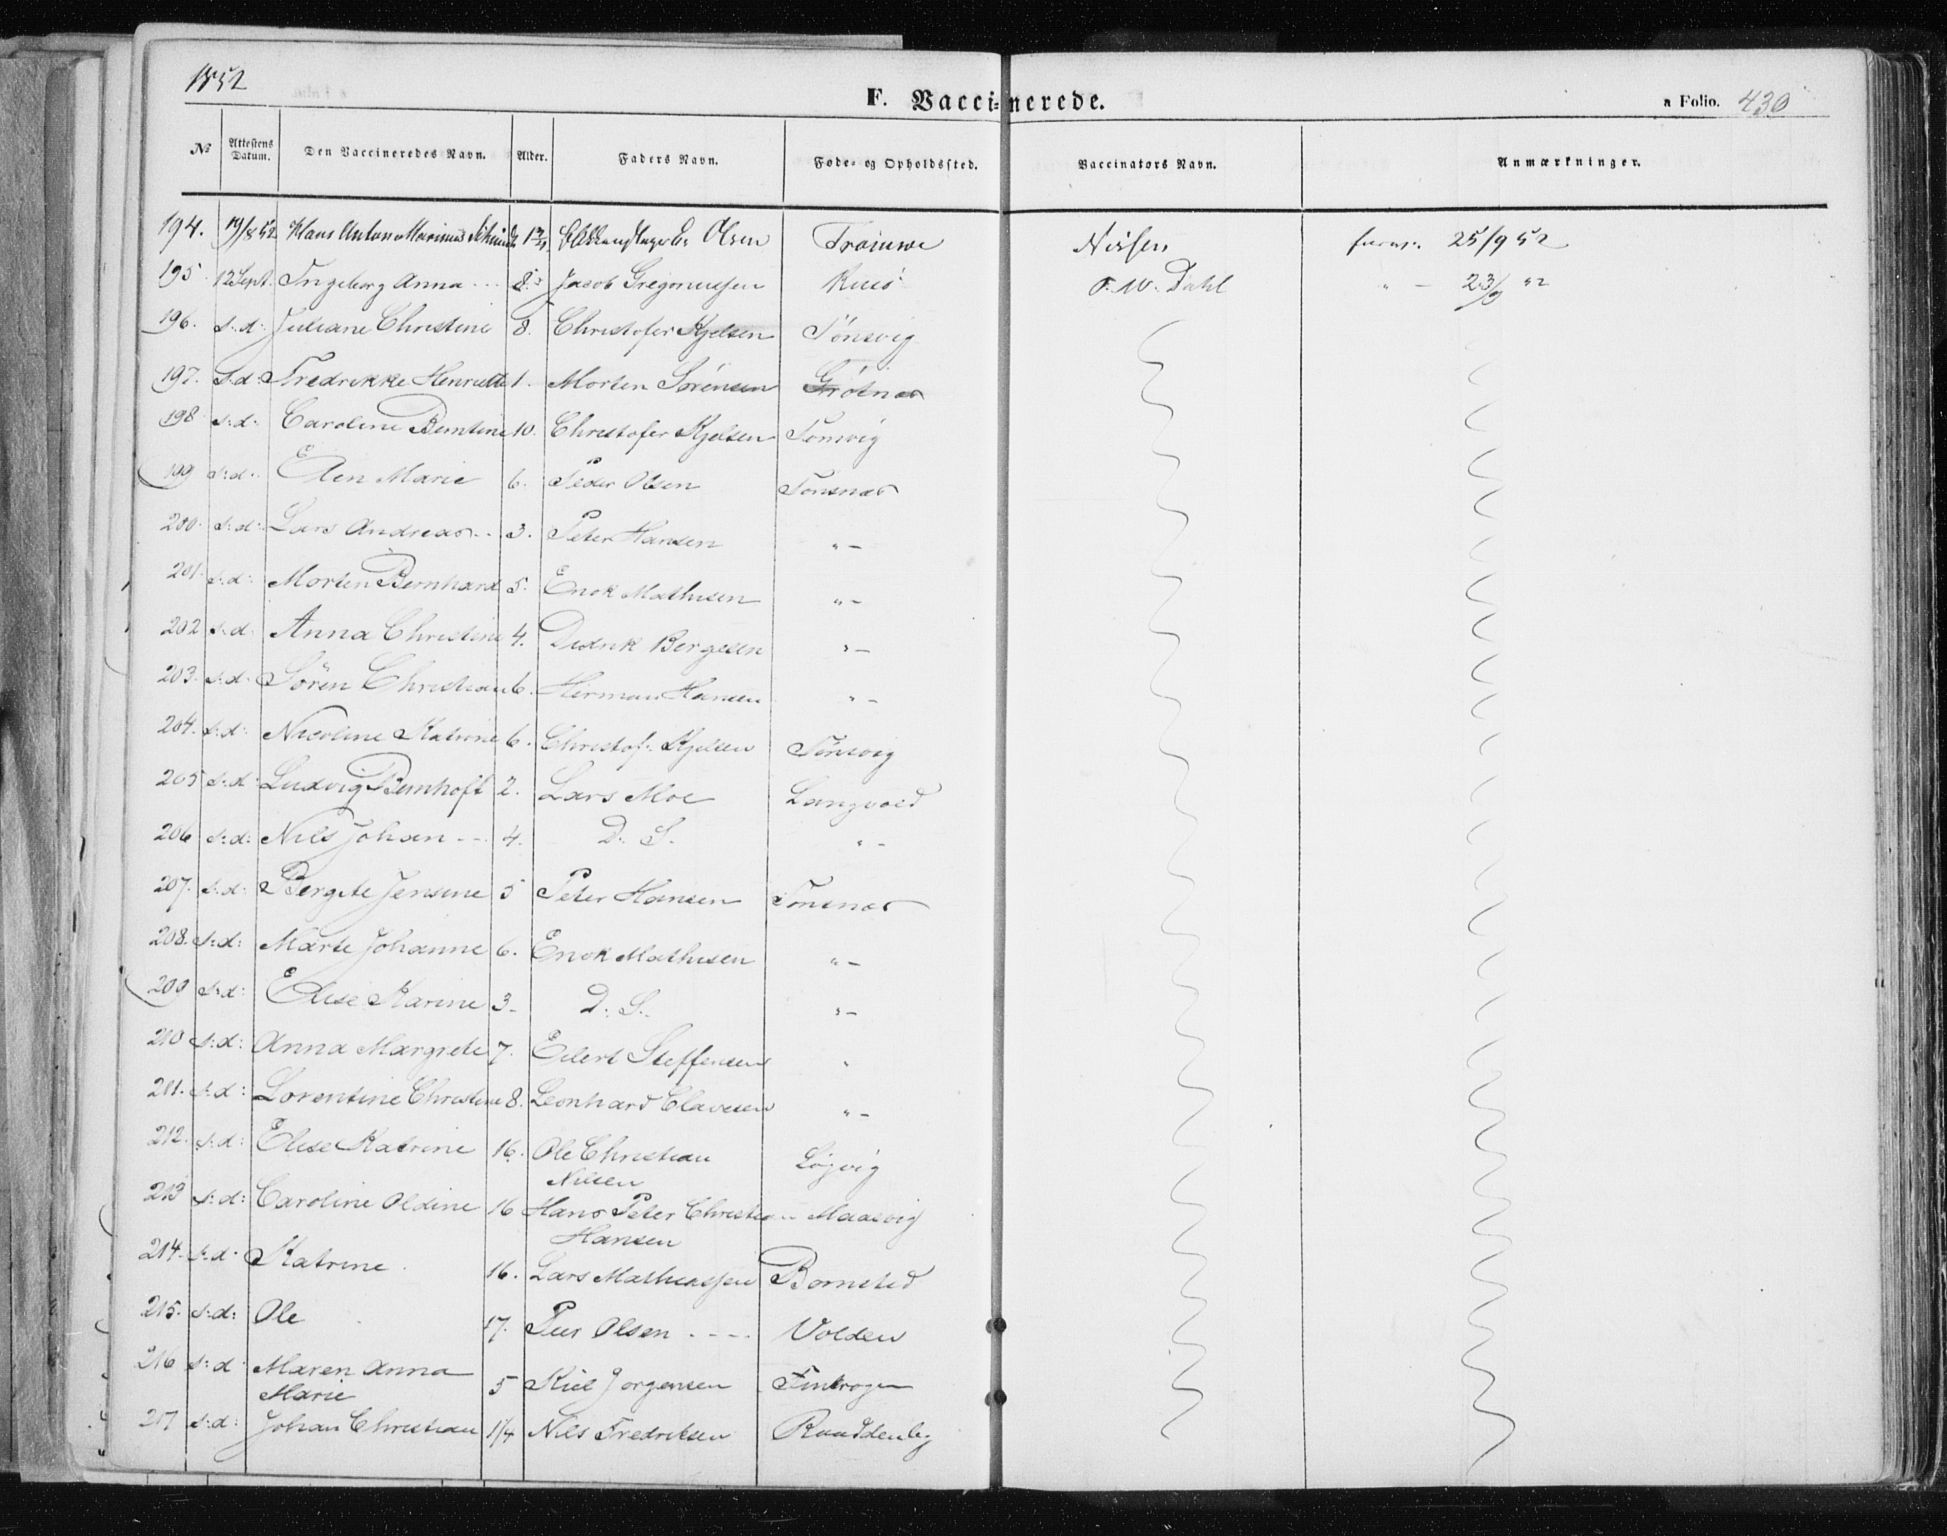 1852
F. Vaccinerede.
a Folio. 430
No Attestens Datum. Den Vaccineredes Navn. Alder. Faders Navn. Føde- og Opholdssted. Vaccinators Navn. Anmærkninger.
194. 19/8 52 Hans Anton Marinus Olsen Tromsøe Nissen 25/9 52
195 12 Sept. Ingeborg Anna 8 Jacob Gregoriussen O. W. Dahl " — 23/9 52
196. s:d: Juliane Christine 8. Christofer Kjelsen Tønsvig
197. s:d: Fredrikke Henriette 1. Morten Sørensen Grøtnæs
198 s:d: Caroline Berntine 10. Christofer Kjelsen Tønsvig
199 s:d: Elen Marie 6. Peder Olsen Tønsnæs
200. s:d: Lars Andreas 3. Peter Hansen " —
201. s:d: Morten Bernhard 5. Enok Mathisen " —
202 s:d: Anna Christine 4. Didrik Bergesen " —
203. s:d: Søren Christian 6. Herman Hansen " —
204. s:d: Nicoline Katrine 6. Christof: Kjelsen Tønsvig
205 s:d: Ludvig Bernhoft 2. Lars Moe Langvold
206 s:d: Nils Johan 4. D. S. " -
207. s:d: Bergite Jensine 5 Peter Hansen Tønsnæs
208. s:d: Marte Johanne 6. Enok Mathisen " —
209 s:d: Elise Karine 3. D. S. " —
210 s:d: Anna Margrete 7. Eilert Steffensen "
211. s:d: Lorentine Christine 8. Leonhard Clavesen " —
212. s:d: Elise Katrine 16. Ole Christian
Nilsen Løgvig
213 s:d: Caroline Oldine 16 Hans Peter Christian Maasvig
Hansen
214. s:d: Katrine 16. Lars Mathiassen Bornsted
215. s:d: Ole 17. Peer Olsen Volden
216 s:d: Maren Anna
Marie 5 Kiel Jørgensen Finkrogen
217 s:d: Johan Christian 1/4 Nils Fredriksen